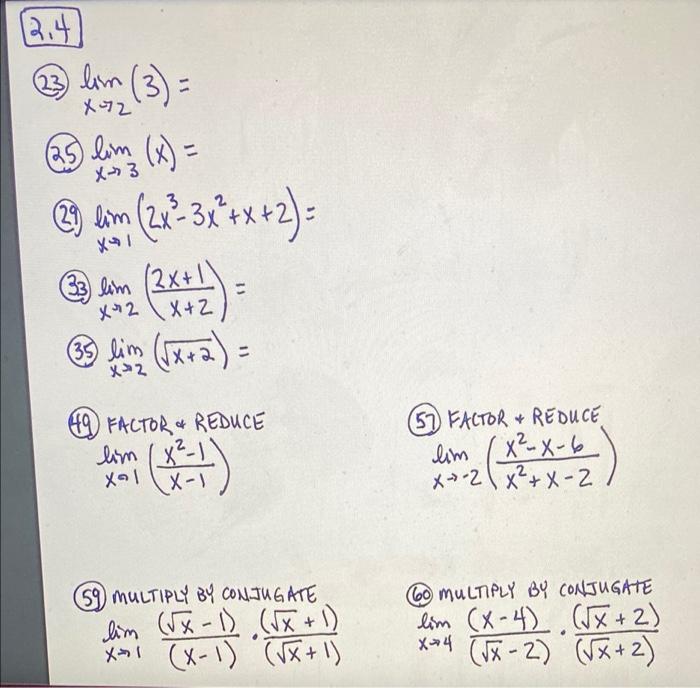 2.4
23 lim x→2 (3) =
25 lim x→3 (x) =
29 lim x→1 (2x³ - 3x² + x + 2) =
33 lim x→2 ((2x+1)/(x+2)) =
35 lim x→2 (√(x+2)) =
49 FACTOR & REDUCE
lim x→1 ((x²-1)/(x-1))
57 FACTOR + REDUCE
lim x→-2 ((x²-x-6)/(x²+x-2))
59 MULTIPLY BY CONJUGATE
lim x→1 (√x - 1)/(x-1) · (√x + 1)/(√x+1)
60 MULTIPLY BY CONJUGATE
lim x→4 (x-4)/(√x-2) · (√x+2)/(√x+2)